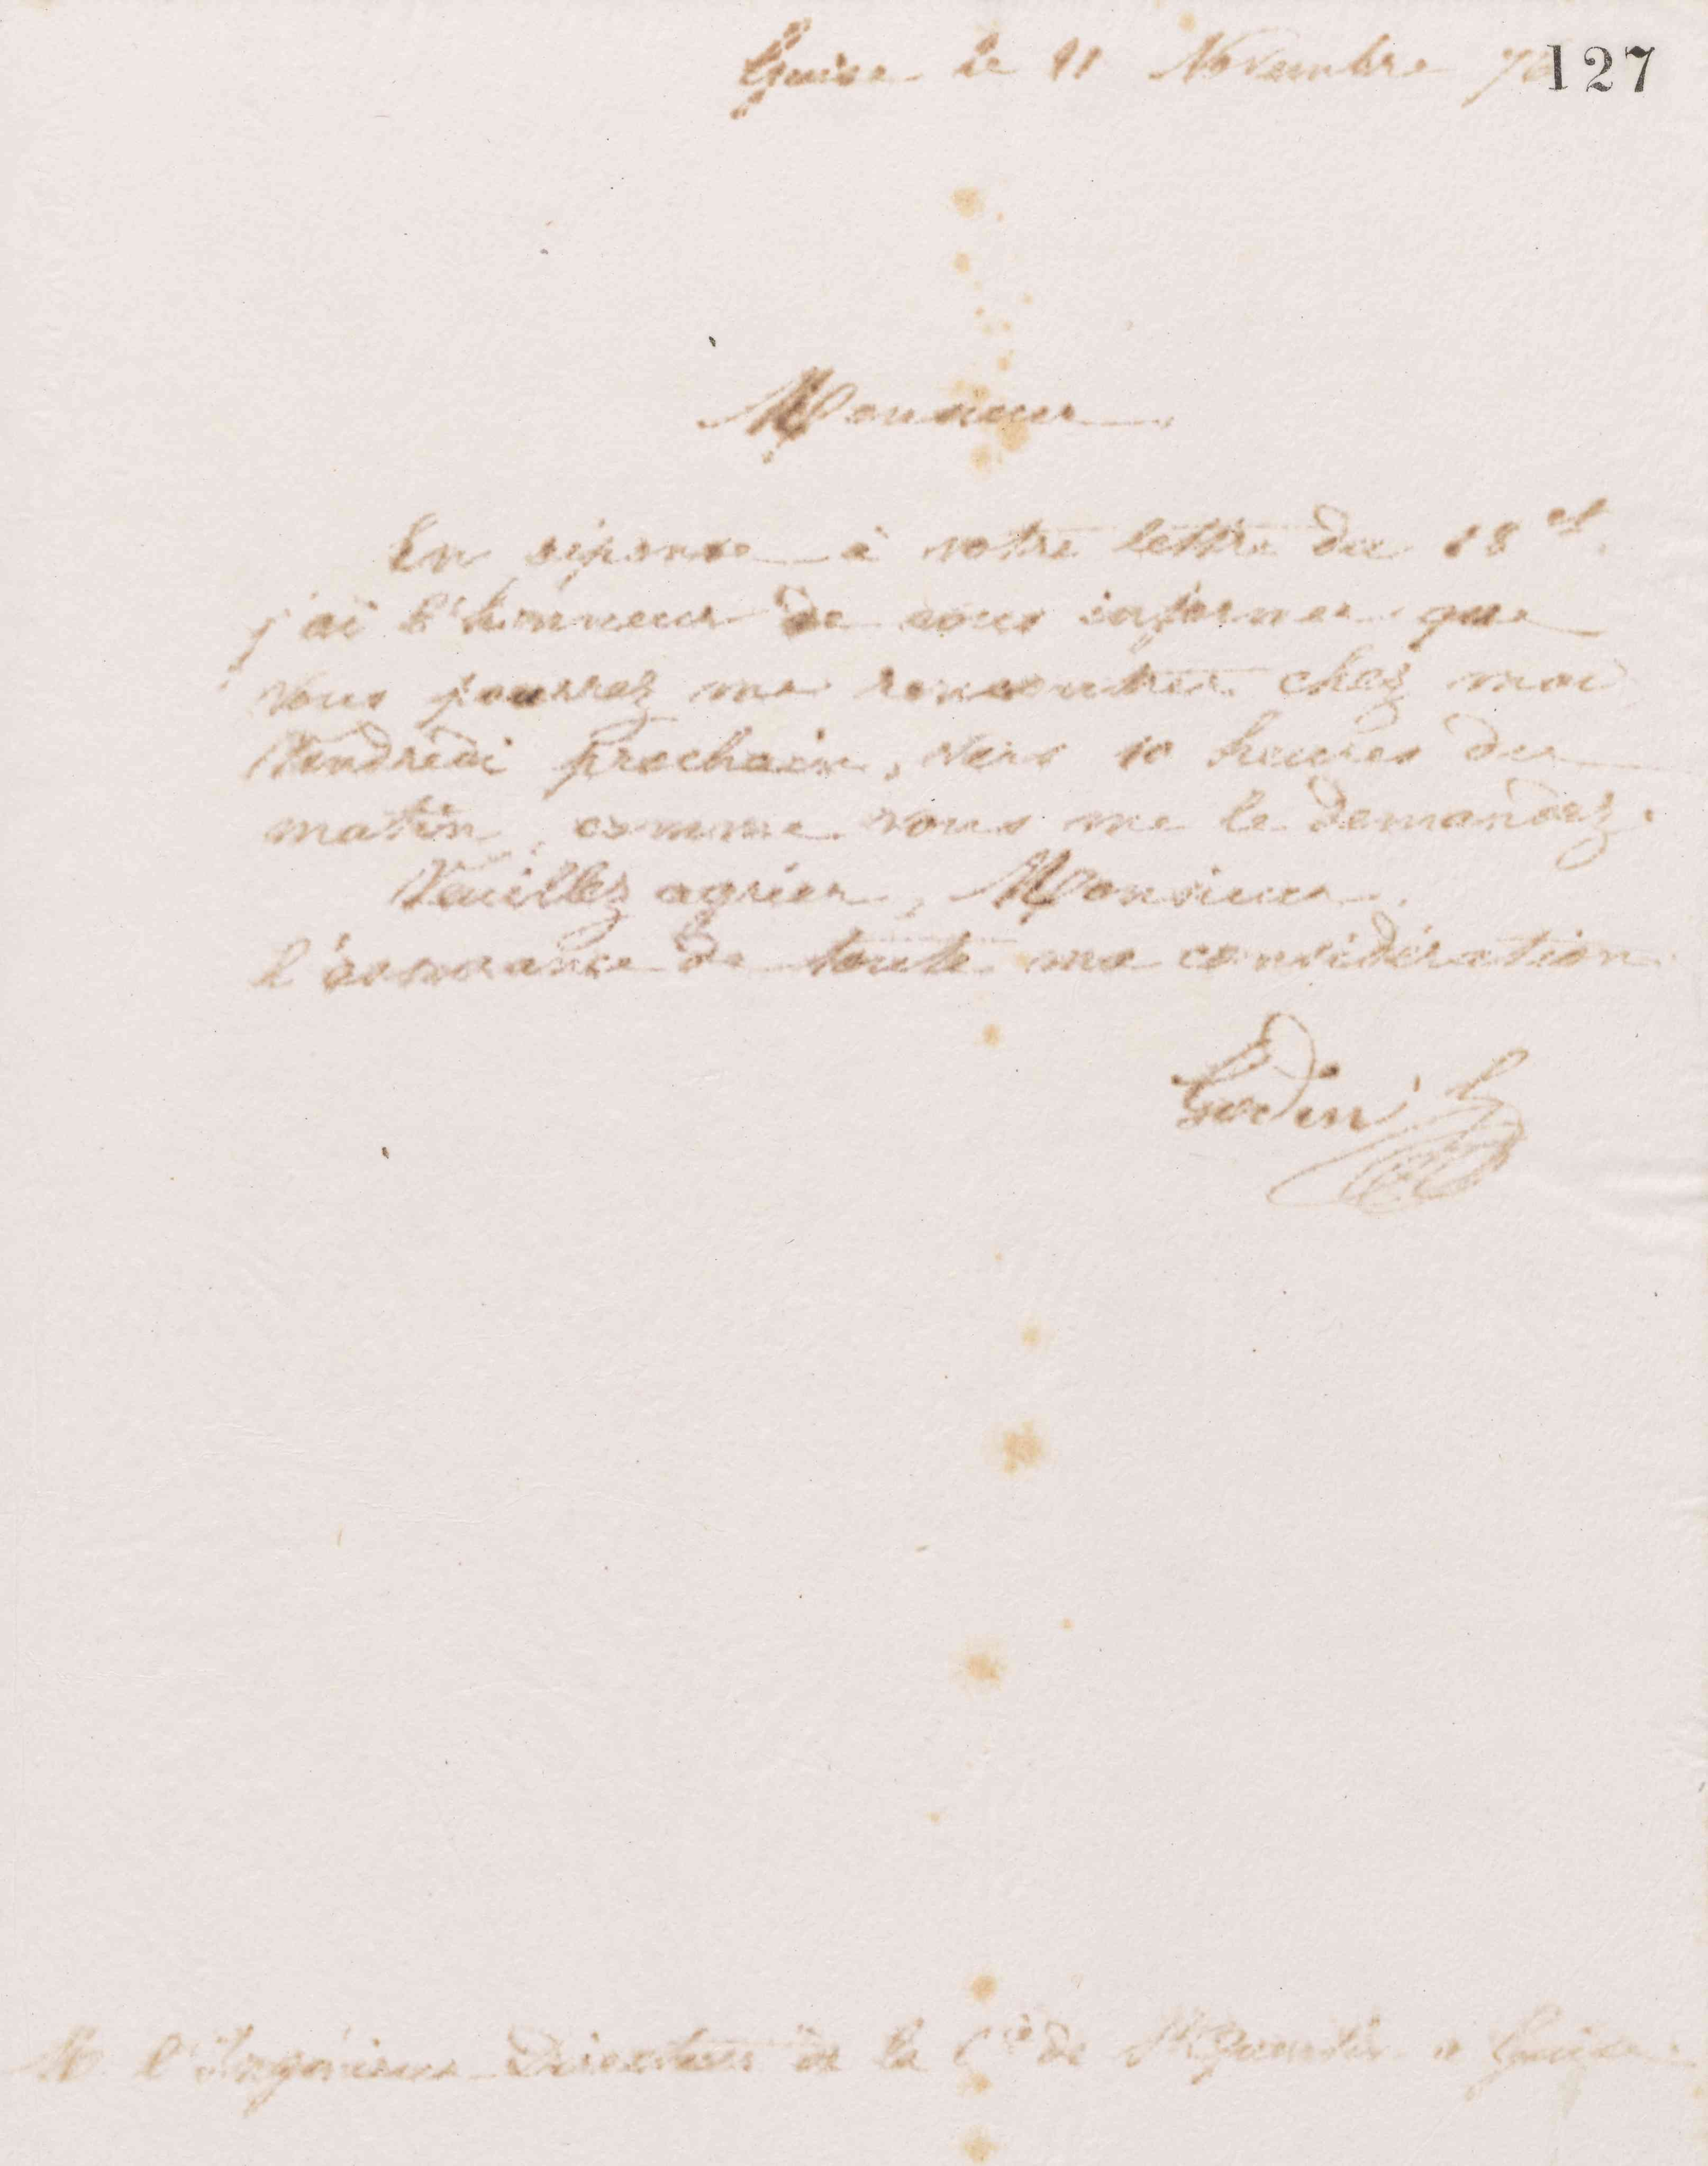 Guise le 21 Novembre 76
127
Monsieur,
En réponse à votre lettre du 18 ct.
j'ai l'honneur de vous informer que
vous pourrez me rencontrer chez moi
Vendredi prochain, vers 10 heures du
matin, comme vous me le demandez.
Veuillez agréer, Monsieur,
l'assurance de toute ma considération
Godin
M. l'Ingénieur Directeur de la Cie de St Quentin à Guise